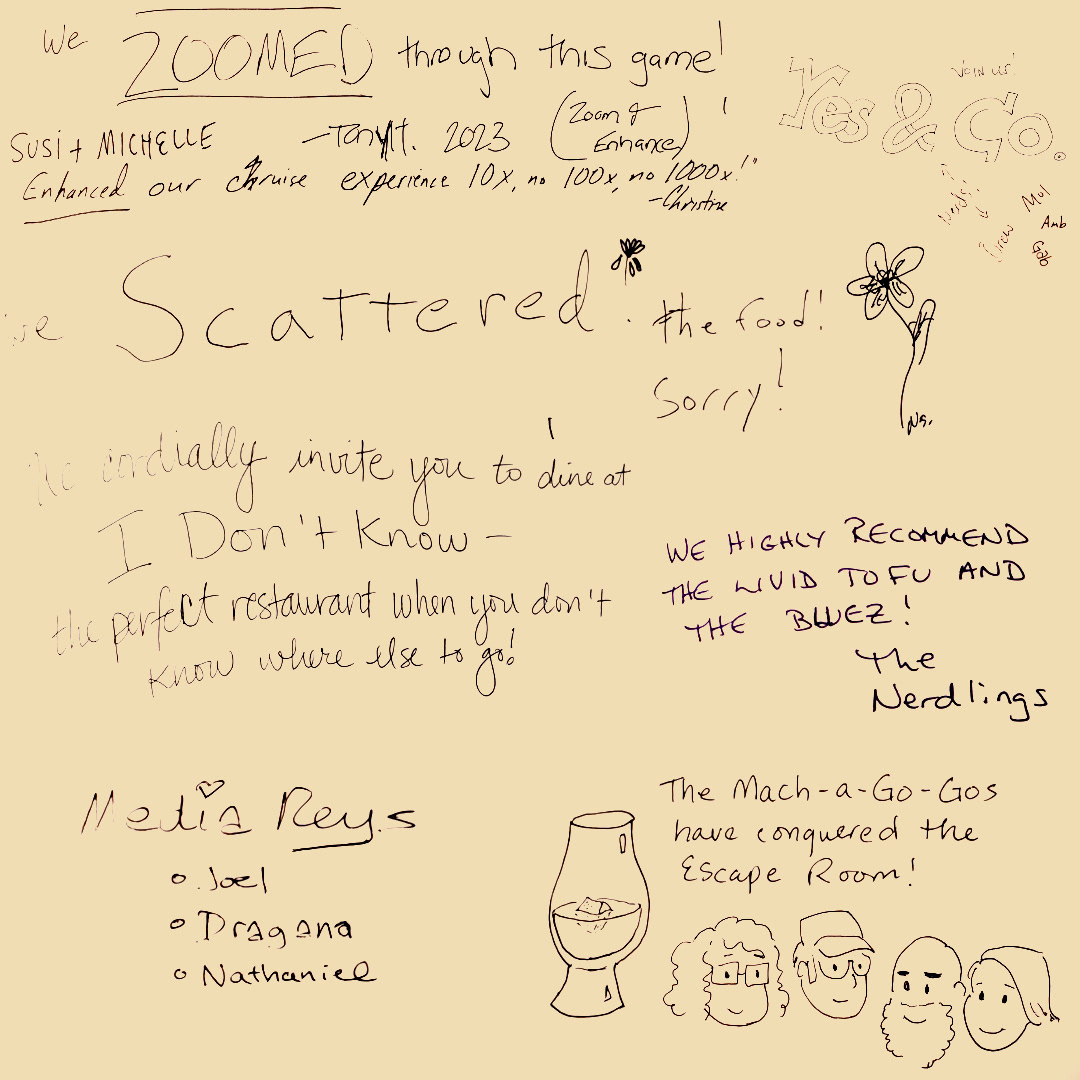 We ZOOMED through this game!
-Tony H. 2023 (Zoom & Enhance)
SUSI + MICHELLE
Enhanced our chruise experience 10x, no 100x, no 1000x!"
-Christine
JOIN US!
Yes & Co.
Nerds!
Drew
Mol
Amb
Gab
we Scattered. the food!
Sorry!
NG.
We cordially invite you to dine at
I Don't Know -
the perfect restaurant when you don't
know where else to go!
WE HIGHLY RECOMMEND
THE LIVID TOFU AND
THE BLUEZ!
The
Nerdlings
Media Reys
Joel
Dragana
Nathaniel
The Mach-a-Go-Gos
have conquered the
Escape Room!